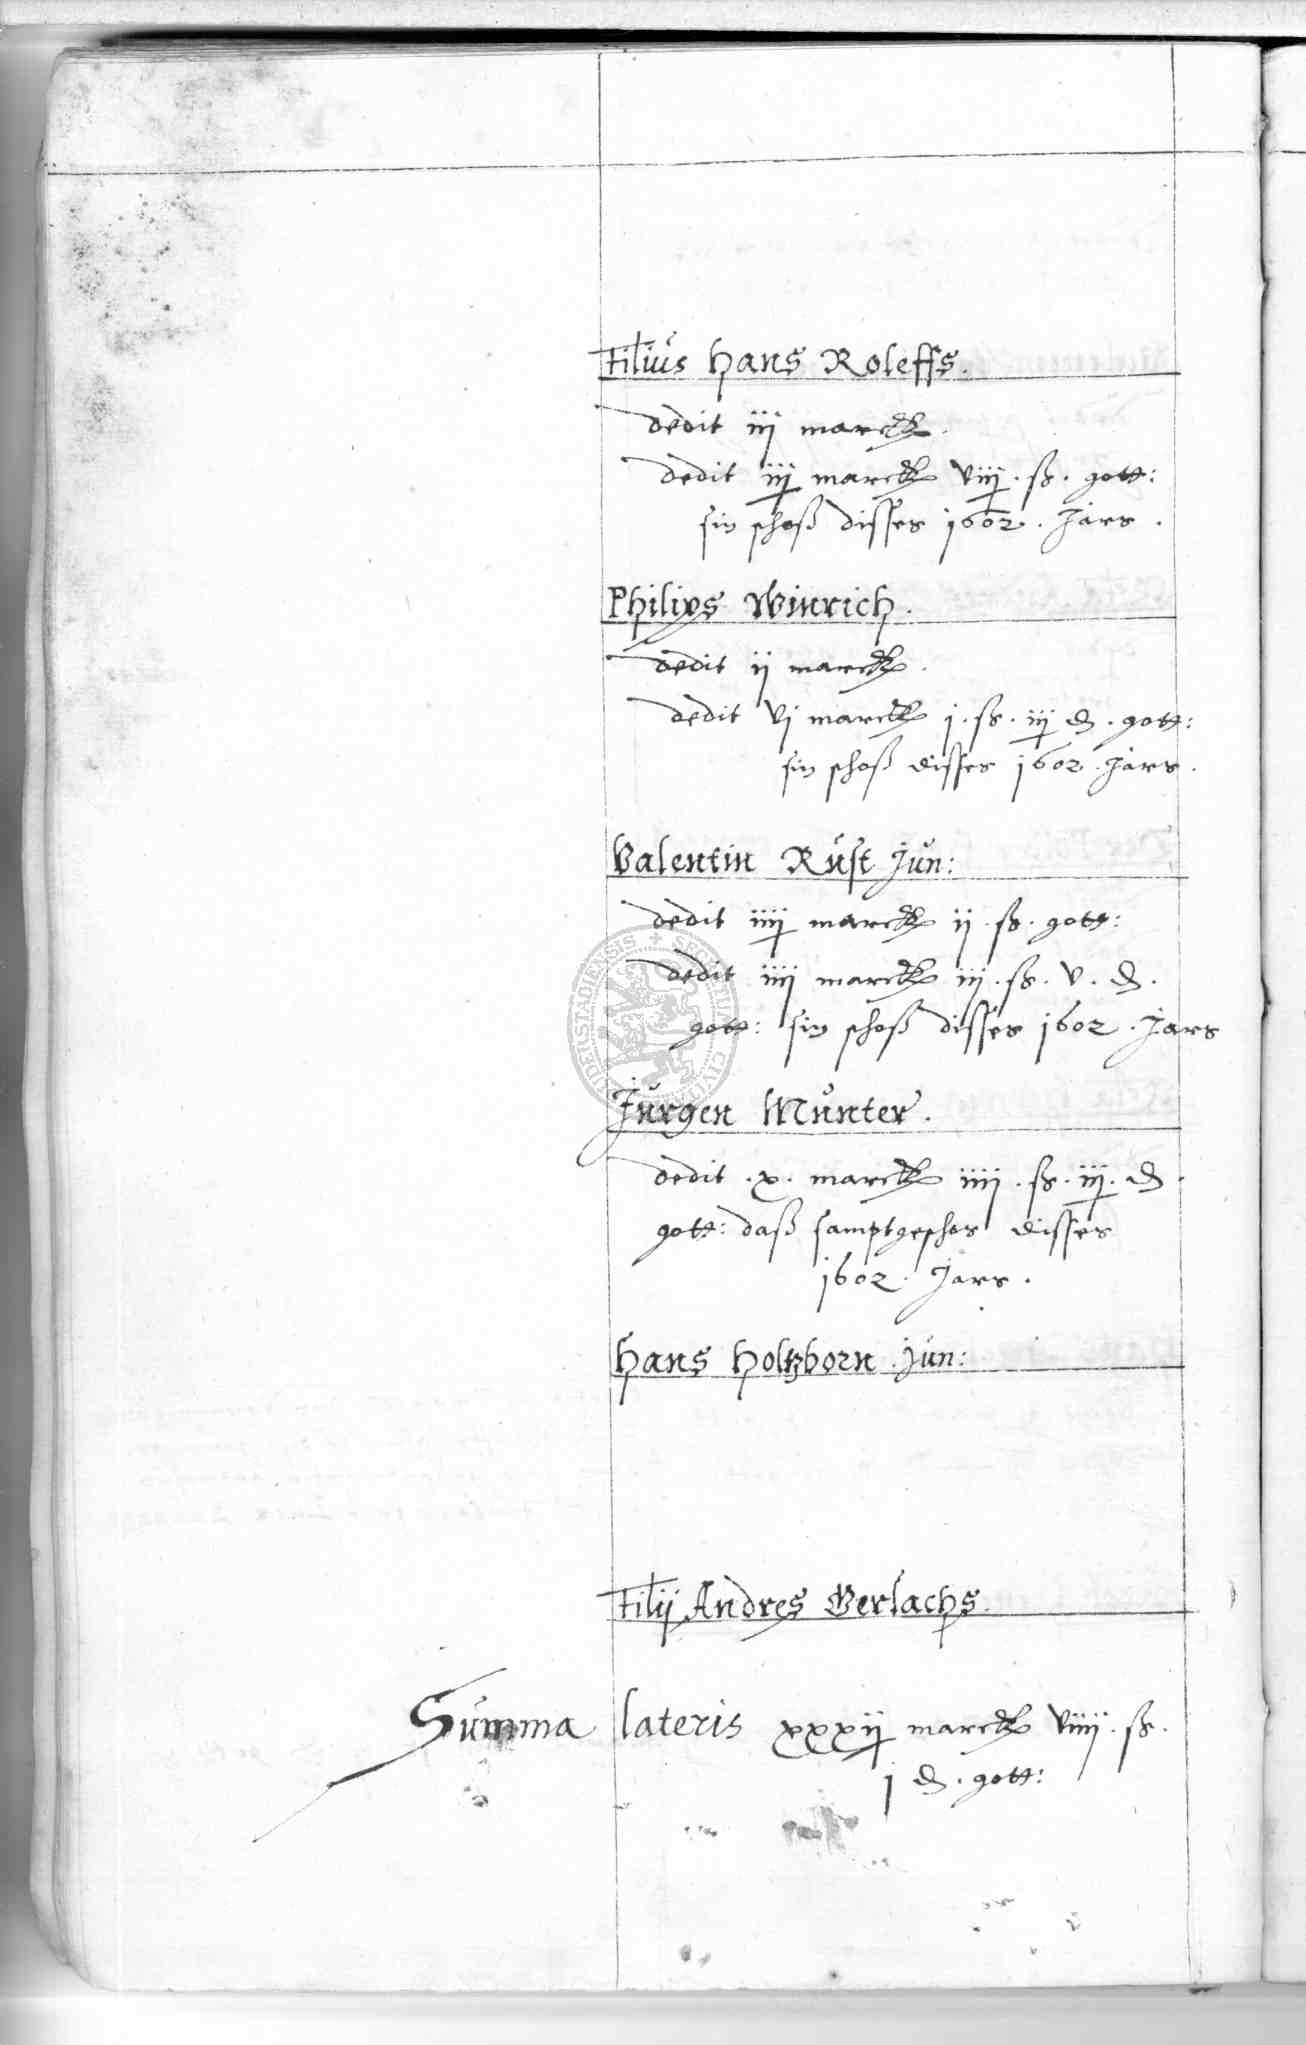 Filius Hans Roleffs.
dedit iij marck
dedit iij marck viij. ß. gott:
sin schoß disses 1602. Jars.
Philips Winrich.
dedit ij marck.
dedit vj marck j. ß. iij d. gott:
sin schoß disses 1602. Jars.
Valentin Rust jun:
dedit iiij marck ij. ß. gott:
dedit iiij marck iij. ß. v. d.
gott: sin schoß disses 1602. Jars
Jurgen Munter.
dedit. x. marck iiij. ß. iij. d.
gott: daß samptgeschos disses
1602. Jars.
Hans Holtzborn. jun:
Filij Andres Gerlachs.
Summa lateris xxxij marck viiij. ß.
j d. gott: